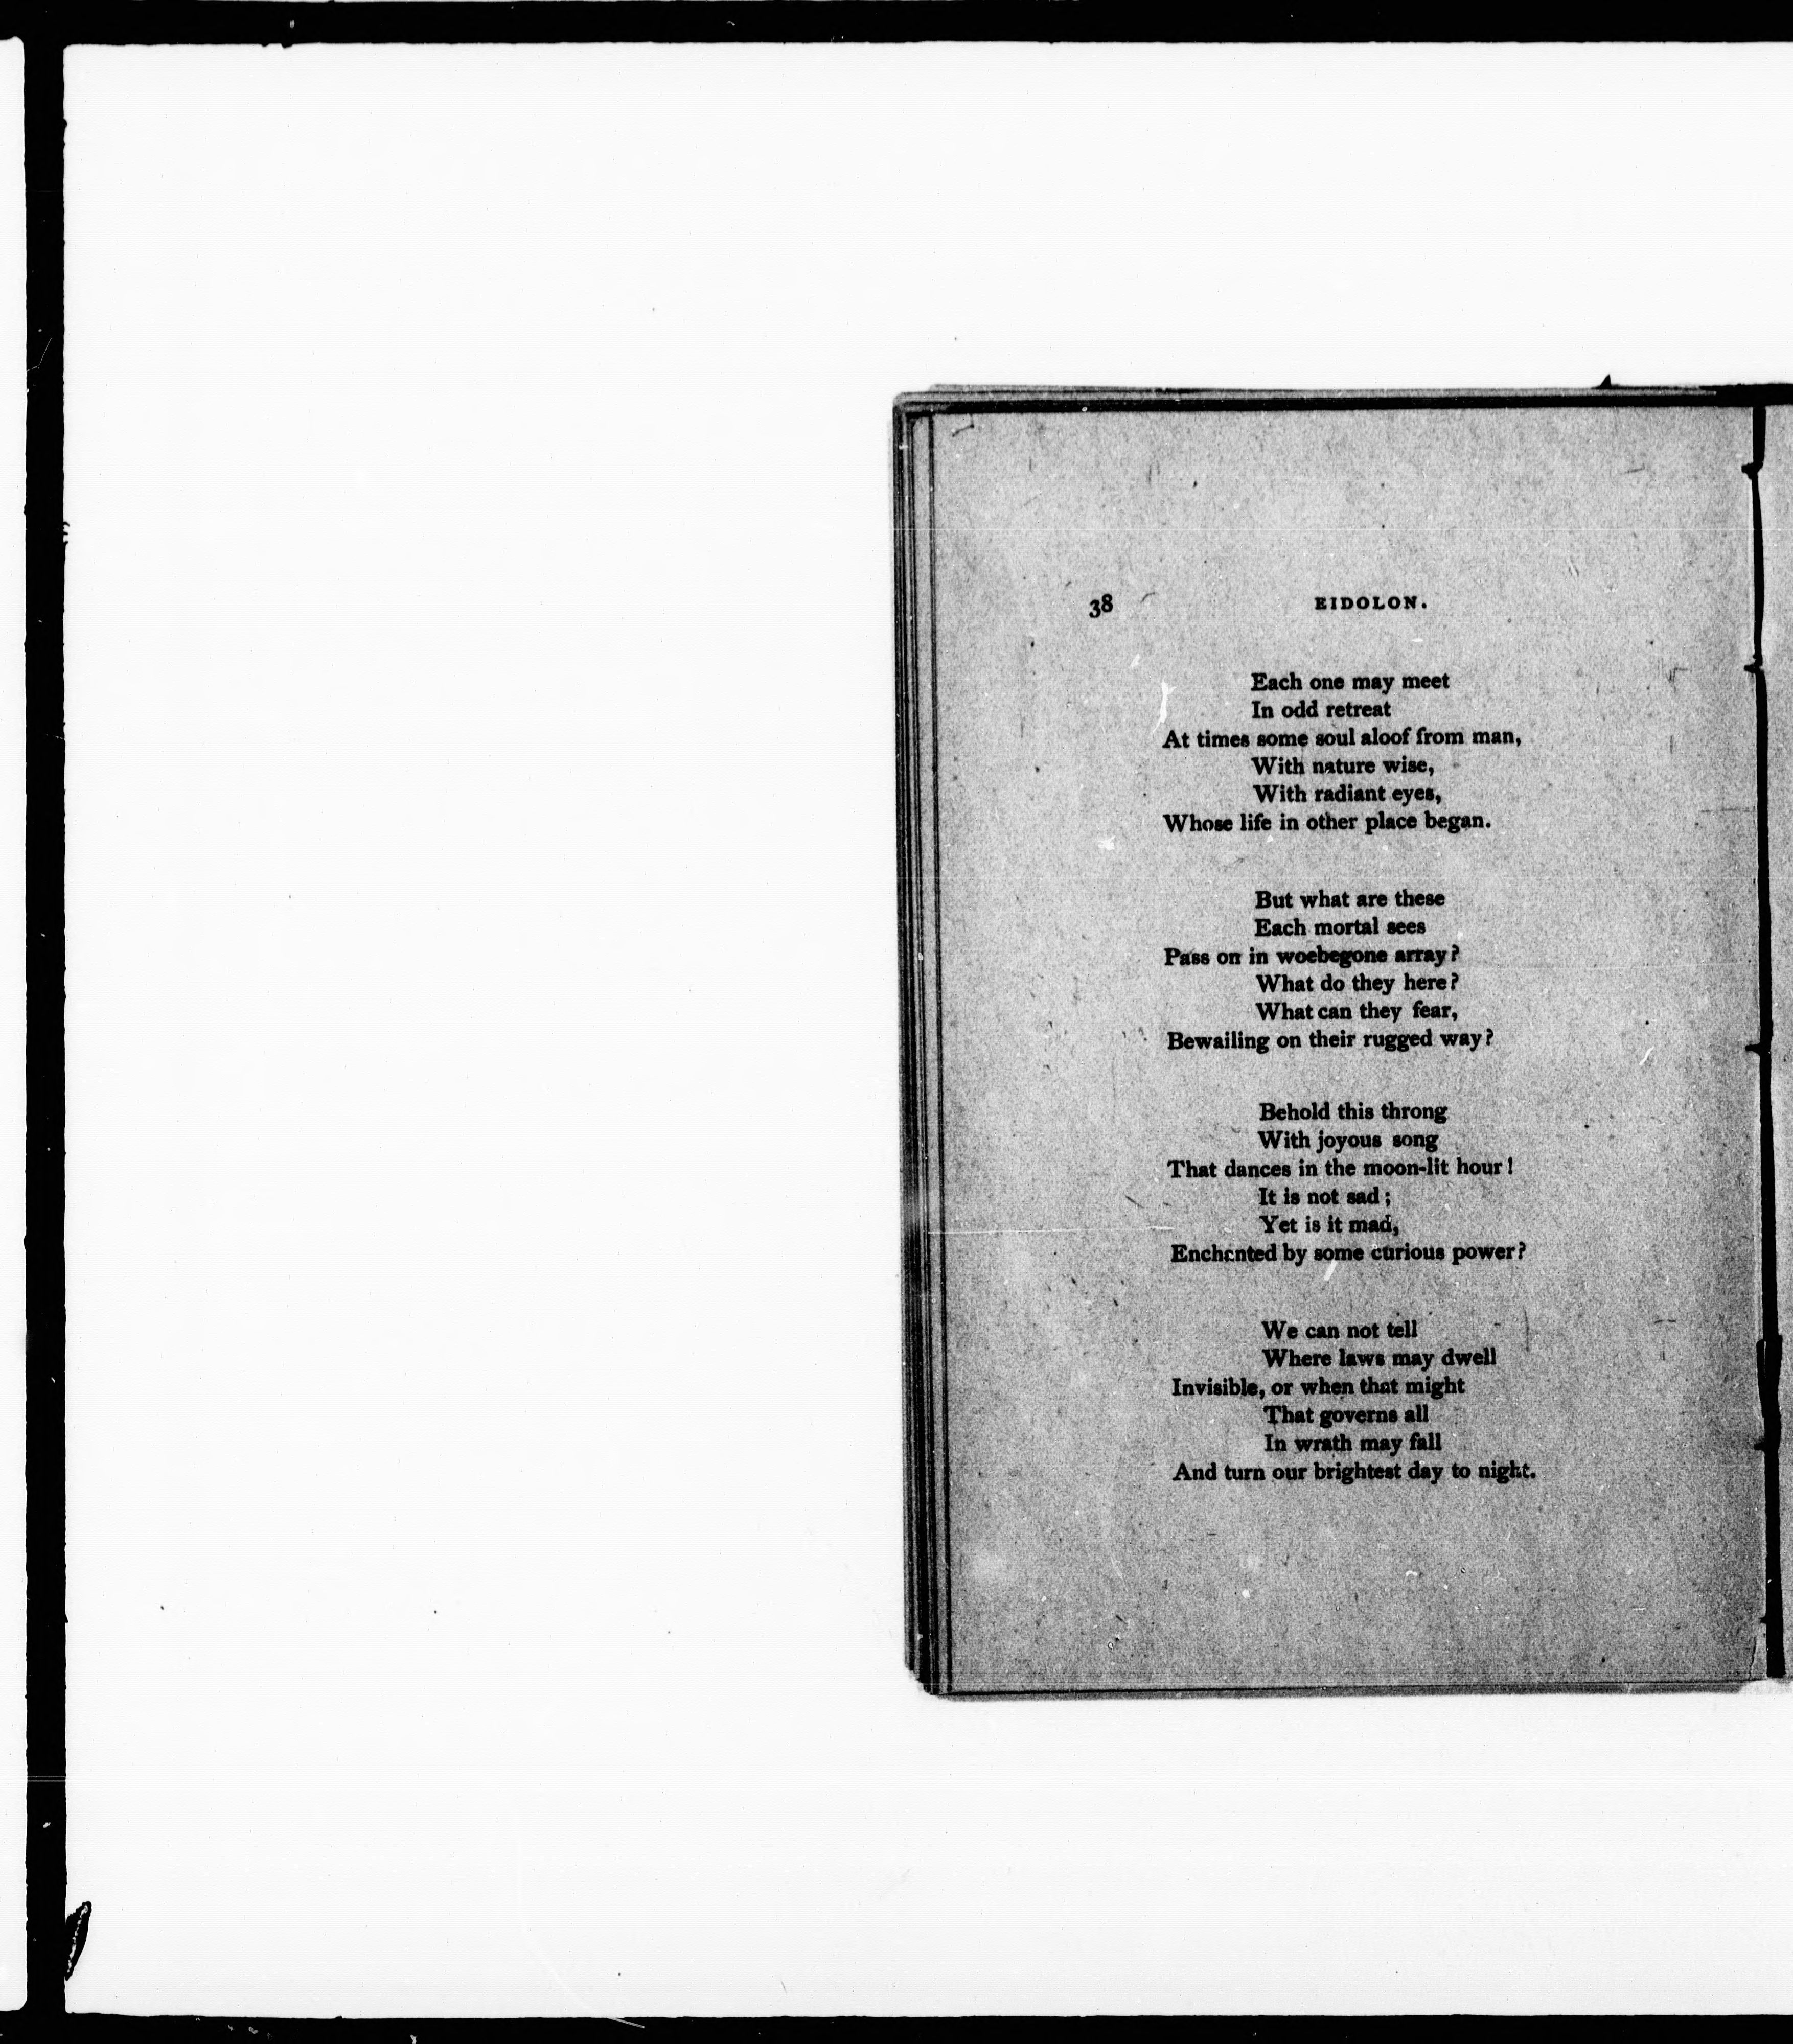 38 EIDOLON.
Each one may meet
In odd retreat
At times some soul aloof from man,
With nature wise,
With radiant eyes,
Whose life in other place began.
But what are these
Each mortal sees
Pass on in woebegone array?
What do they here?
What can they fear,
Bewailing on their rugged way?
Behold this throng
With joyous song
That dances in the moon-lit hour!
It is not sad;
Yet is it mad,
Enchanted by some curious power?
We can not tell
Where laws may dwell
Invisible, or when that might
That governs all
In wrath may fall
And turn our brightest day to night.